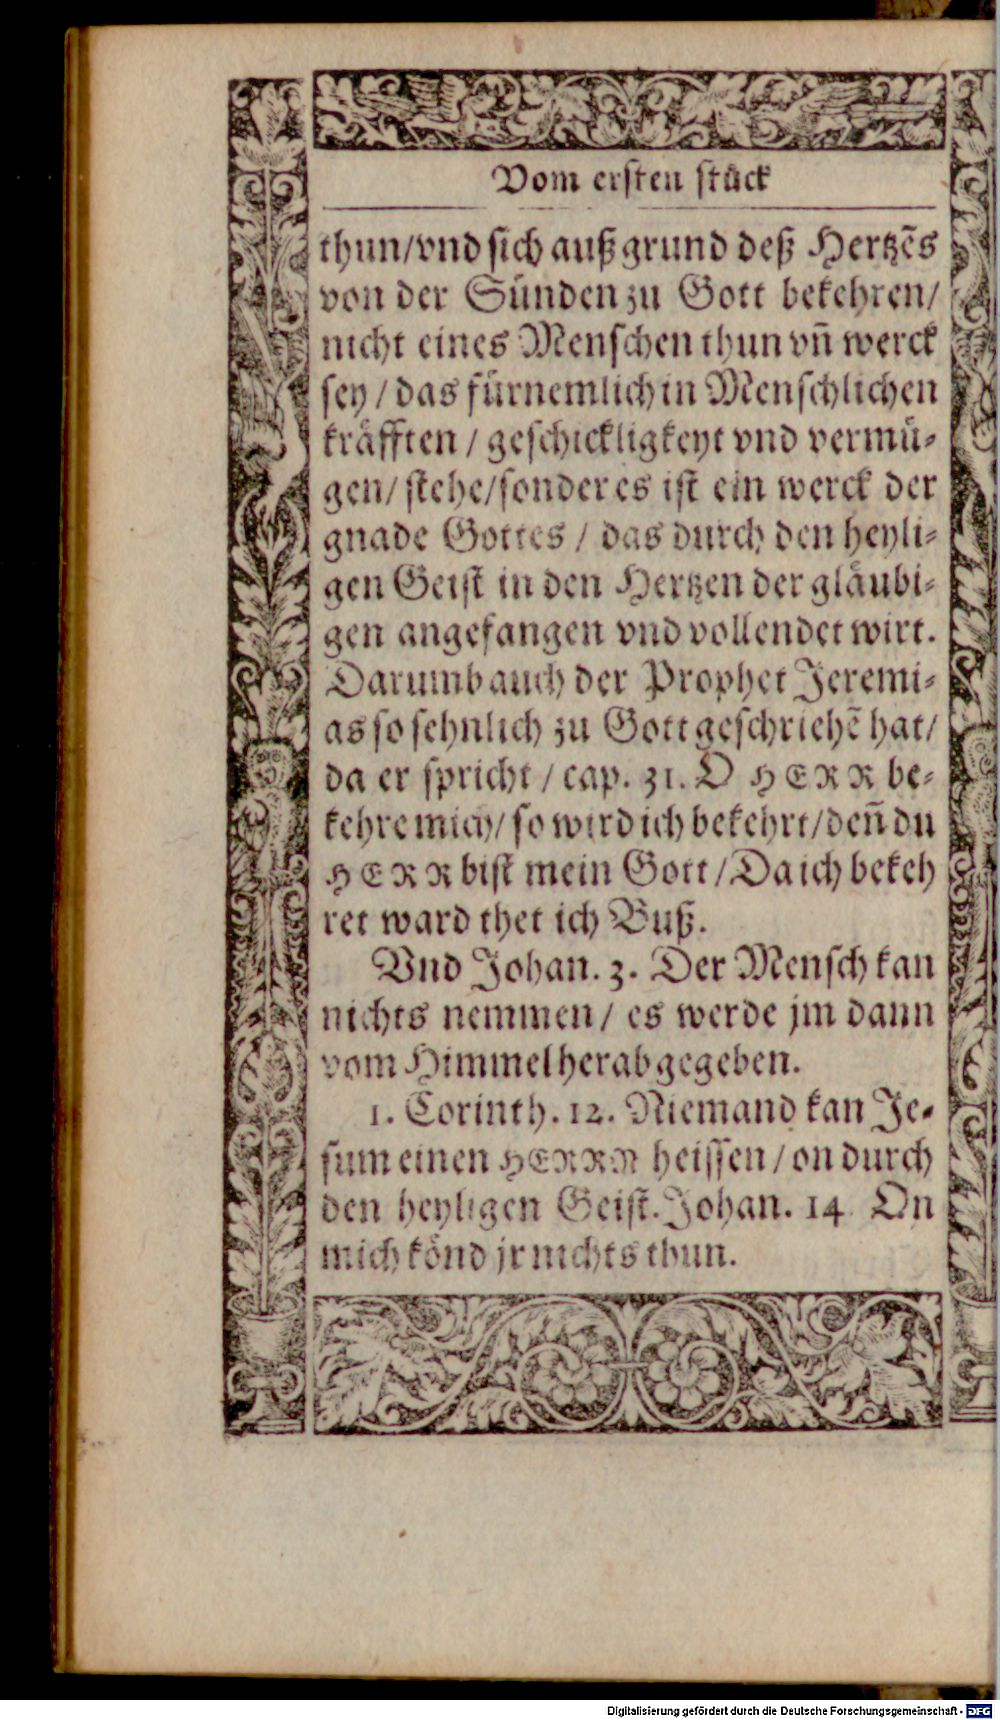 Vom ersten stück
thun/vnd sich auß grund deß Hertzẽs
von der Sünden zu Gott bekehren/
nicht eines Menschen thun vñ werck
sey / das fürnemlich in Menschlichen
kräfften / geschickligkeyt vnd vermü-
gen/ stehe/sonder es ist ein werck der
gnade Gottes / das durch den heyli-
gen Geist in den Hertzen der gläubi-
gen angefangen vnd vollendet wirt.
Darumb auch der Prophet Jeremi-
as so sehnlich zu Gott geschriehẽ hat/
da er spricht / cap. 31. O HERR be-
kehre mich/ so wird ich bekehrt/deñ du
HERR bist mein Gott /Da ich bekeh
ret ward thet ich Buß.
Vnd Johan. 3. Der Mensch kan
nichts nemmen/ es werde jm dann
vom Himmel herab gegeben.
1. Corinth. 12. Niemand kan Je-
sum einen HERRN heissen / on durch
den heyligen Geist. Johan. 14 On
mich könd jr nichts thun.
Digitalisierung gefördert durch die Deutsche Forschungsgemeinschaft - DFG